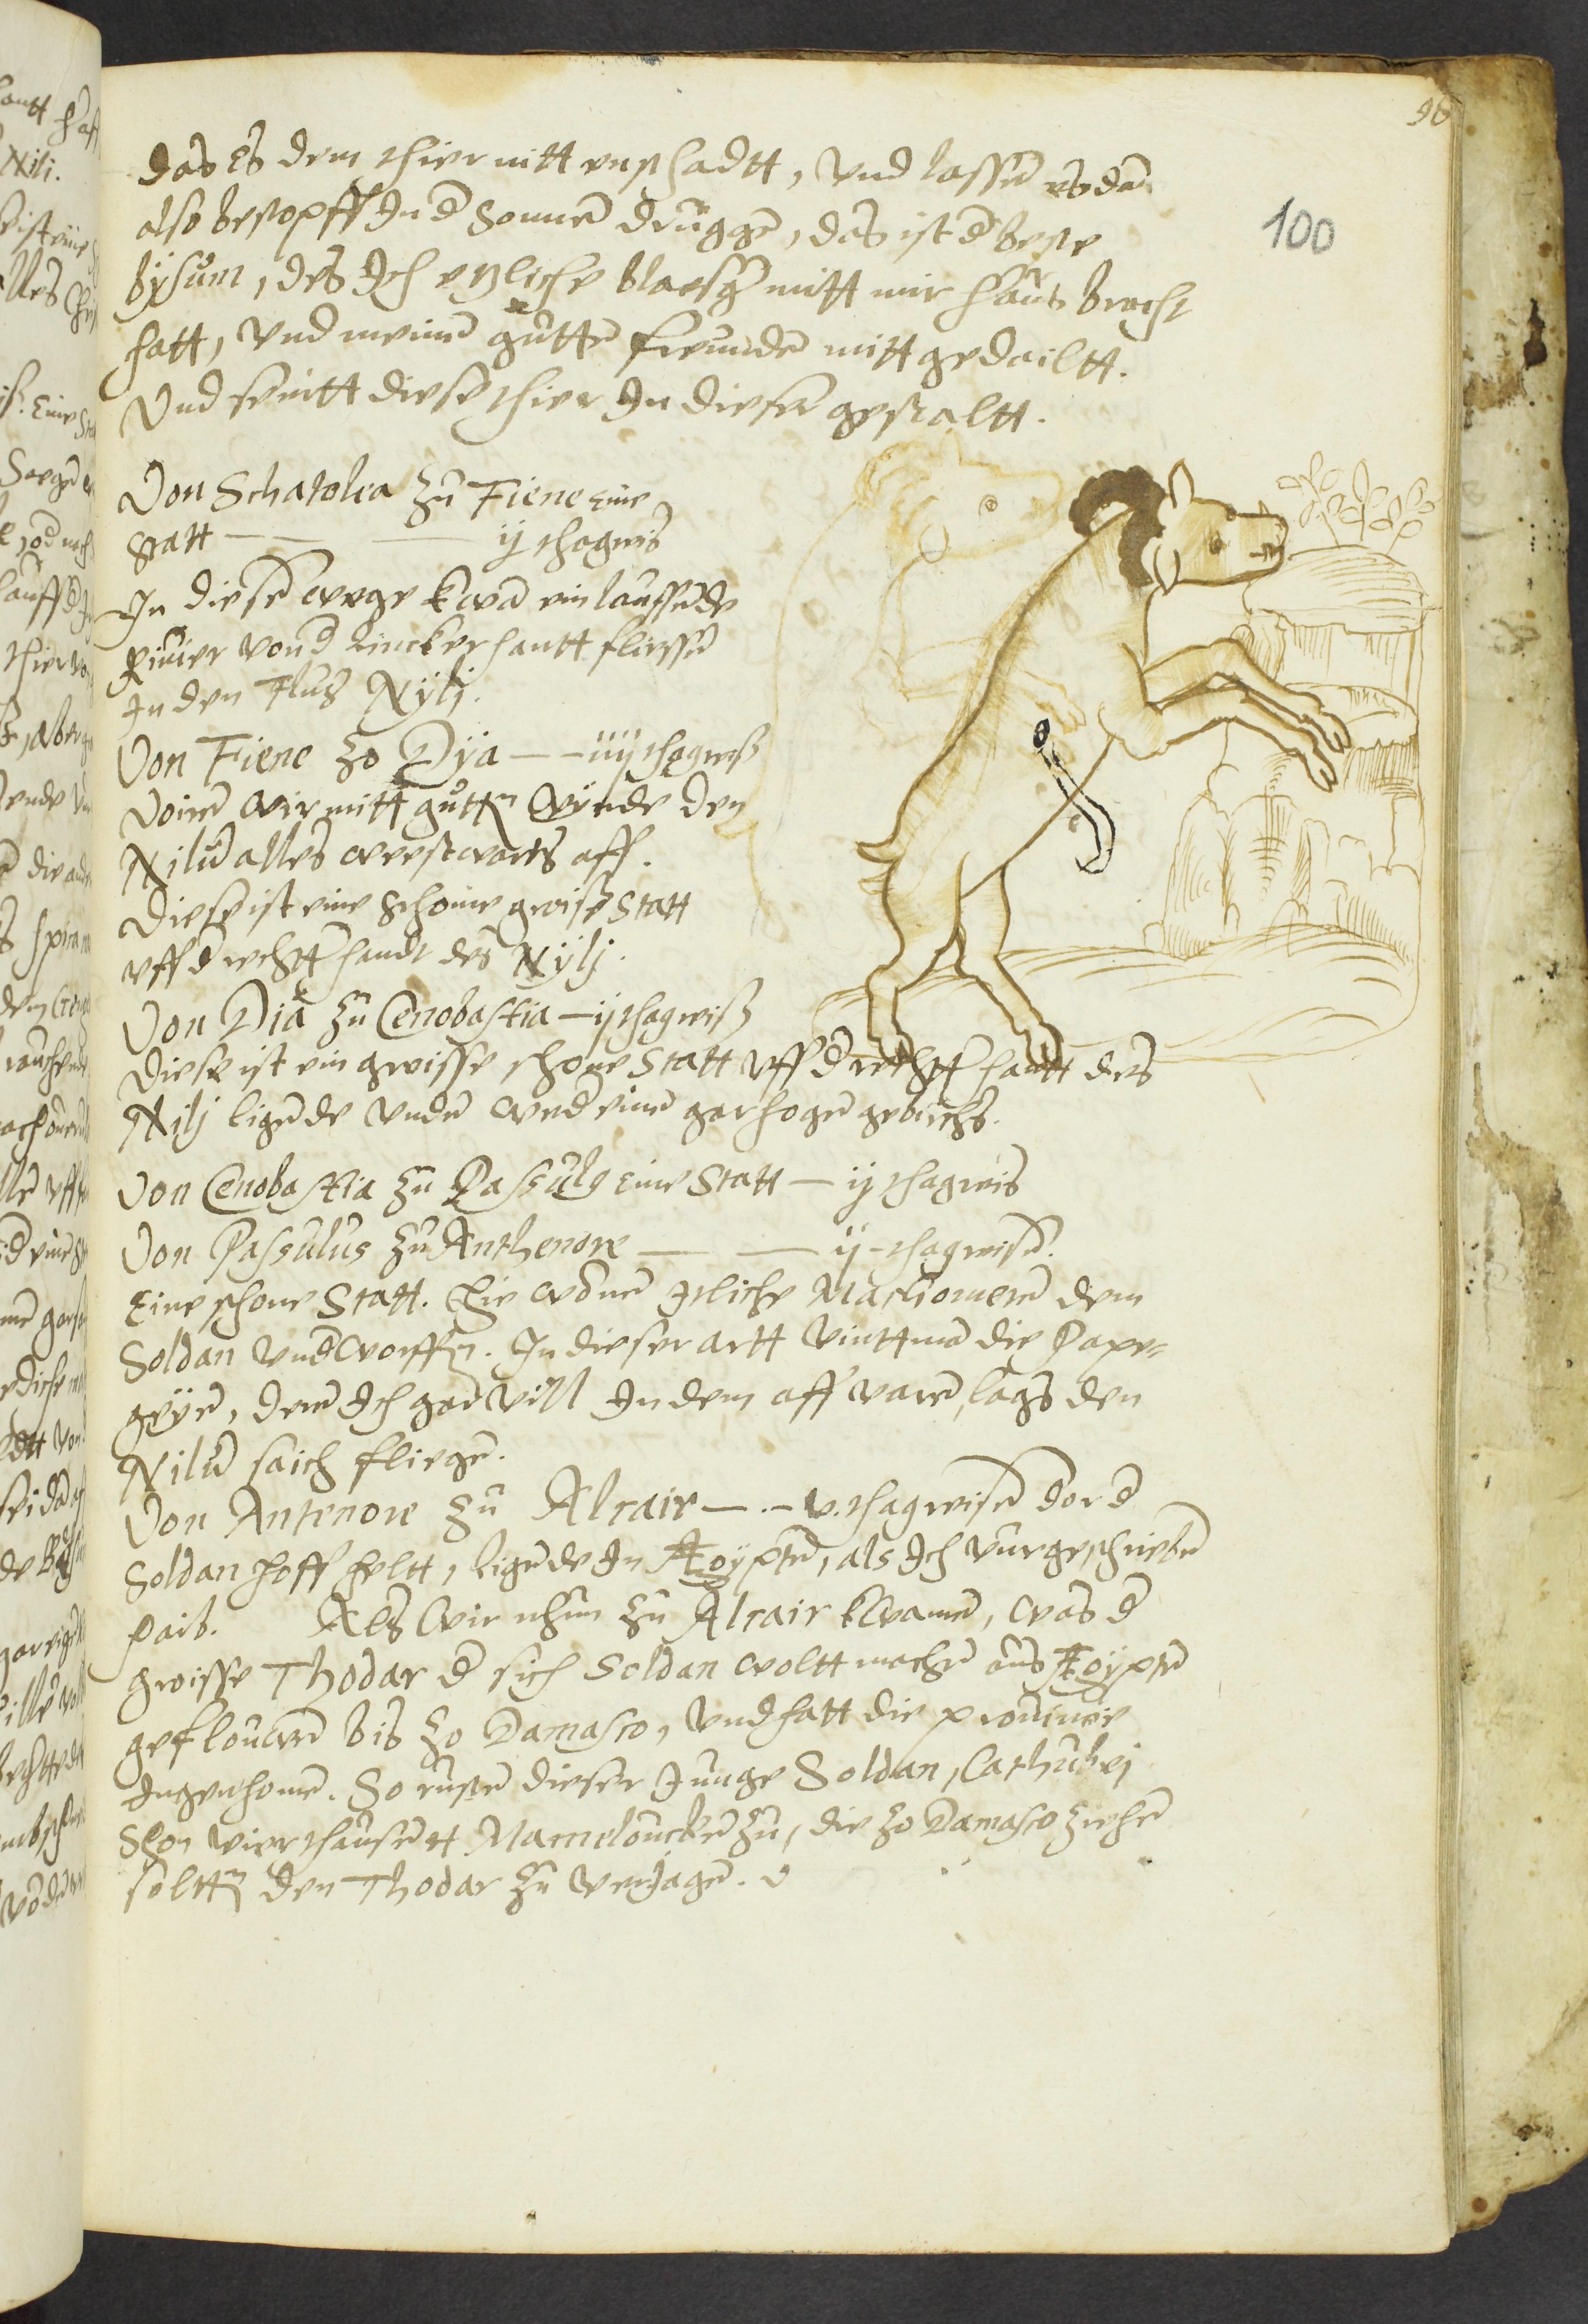 96
100
das es dem thier nitt enschadtt, Vnd lassen es dan
also bestopff In d Sonnen druggen, das ist d beste
bÿsum, des Ich etzliche blaesger mitt mir haus bracht
hatt, Vnd meinen gutten freunden mitt gedailtt.
Vnd seintt diese thier In dieser gestaltt.
Von Schatolea zu Fiene eine
Statt — — ij thagreis
In diesem wege kwam ein lauffende
Riuier von d lincker hantt fliessen
In den Flus Nÿlj.
Von Fiene zo Dÿa — iiij thagreis
Voiren wir mitt gutten Wÿnde den
Nilum alles weestwarts aff.
Diese ist eine schoine groisse Statt
vff d rechtter handt des Nÿlj.
Von Dia zu Cenobastia — ij thagreis
Diese ist ein groisse schone Statt vff d rechtter hantt des
Nilj ligende vnden an einem gar hogen gebirchs.
Von Cenobastia zu Passulg eine Statt — ij thagreis
Von Passulus zu Anthenore — — ij thagreisen
Eine schone Statt. Hie wonen Itliche Machomeren dem
Soldan vnderworffen. In dieser artt vintt man die Pape-
geÿen, deren Ich gar vill In dem aff varen, langs den
Nilum saich fliegen.
Von Antenore zu Alcair — v. thagreisen dor d
Soldan hoff heltt, ligende In Ægÿpten, als Ich vurgeschrieben
haib. Als wir nhun zu Alcair kwamen, was d
groisse Thodar d sich Soldan woltt machen aus Ægÿpten
geflouwen bis zo Damasco, vnd hatt die prouincie
Ingenhomen. So rusten dieser Junge Soldan, Cathubej
Shon vier thausentt Mameloucken zu, die zo Damasco ziehen
soltten den Thodar zu verjagen.